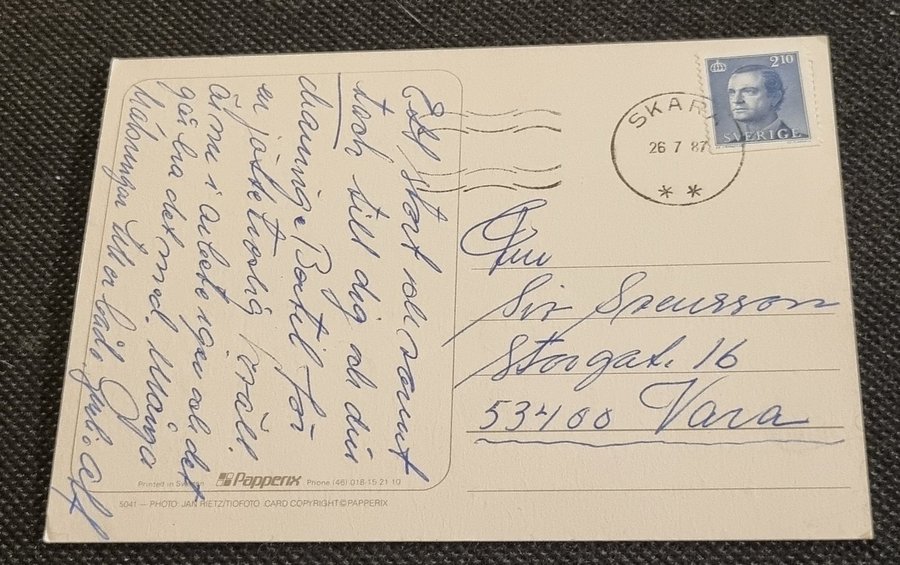 Ett stort och varmt
tack till dig och din
charmige Bertil för
en jättetrevlig kväll.
Är nu i arbete igen och det
går bra det med. Många
hälsningar till er båda
SKAR
26 7 87
2 10
SVERIGE
Fru
Siv Svensson
Storgat. 16
53400 Vara
Printed in Sweden Papperix Phone (46) 018-15 21 10
5041 — PHOTO: JAN RIETZ/TIOFOTO CARD COPYRIGHT © PAPPERIX